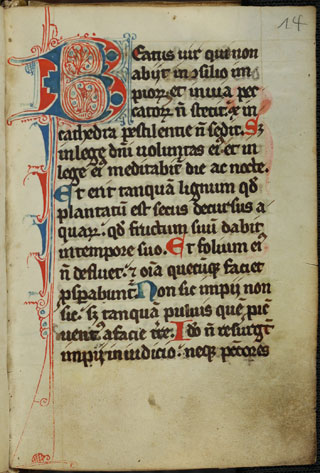 14
Beatus uir qui non
abijt in ɔsilio im
pior. et in uia pec
catoꝝ n̄ stetit. et in
cathedra pestilentie n̄ sedit. Sꝫ
in lege dn̄i uoluntas eiꝰ et in
lege eiꝰ meditabit̉ die ac nocte.
Et erit tanquā lignum qd̄
plantatum est secus decursus a
quaꝝ: qd̄ fructum suū dabit
in tempore suo. Et folium eiꝰ
n̄ defluet: ⁊ oīa quecūqꝫ faciet
ꝓsꝑabunt̉. Non sic impij non
sic: sꝫ tanquā puluis quē ꝓic̄
uentꝰ a facie t̄re. Ido n̄ resurgūt
impij in iudicio: neqꝫ pctōres